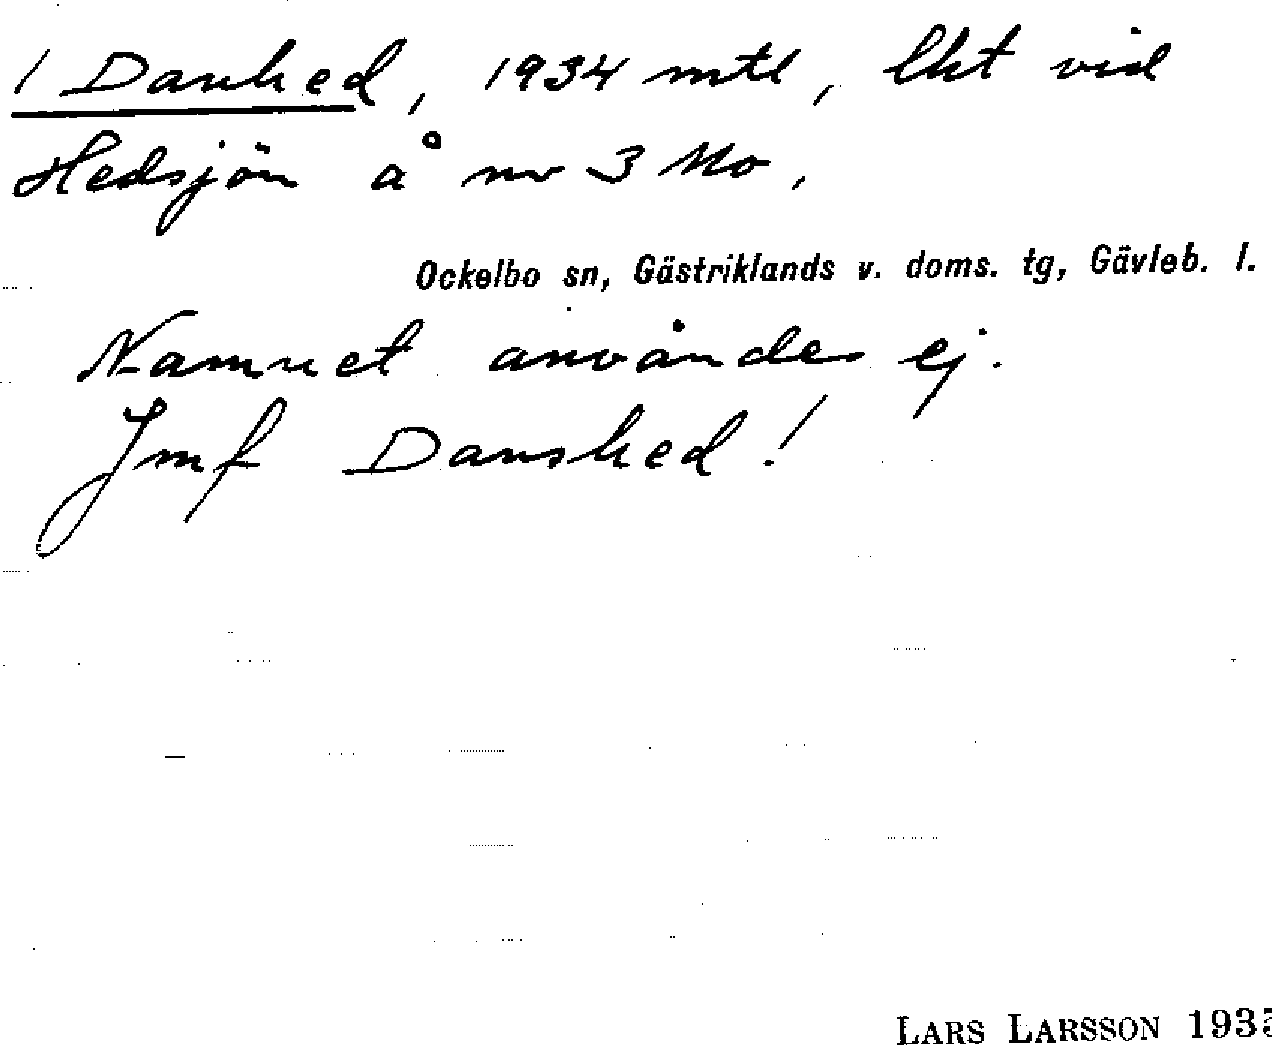 / Danhed, 1934 mtl, lht vid
Hedsjön å nr 3 Mo,
Ockelbo sn, Gästriklands v. doms. tg, Gävleb. l.
Namnet användes ej.
Jmf Danshed!
LARS LARSSON 1935